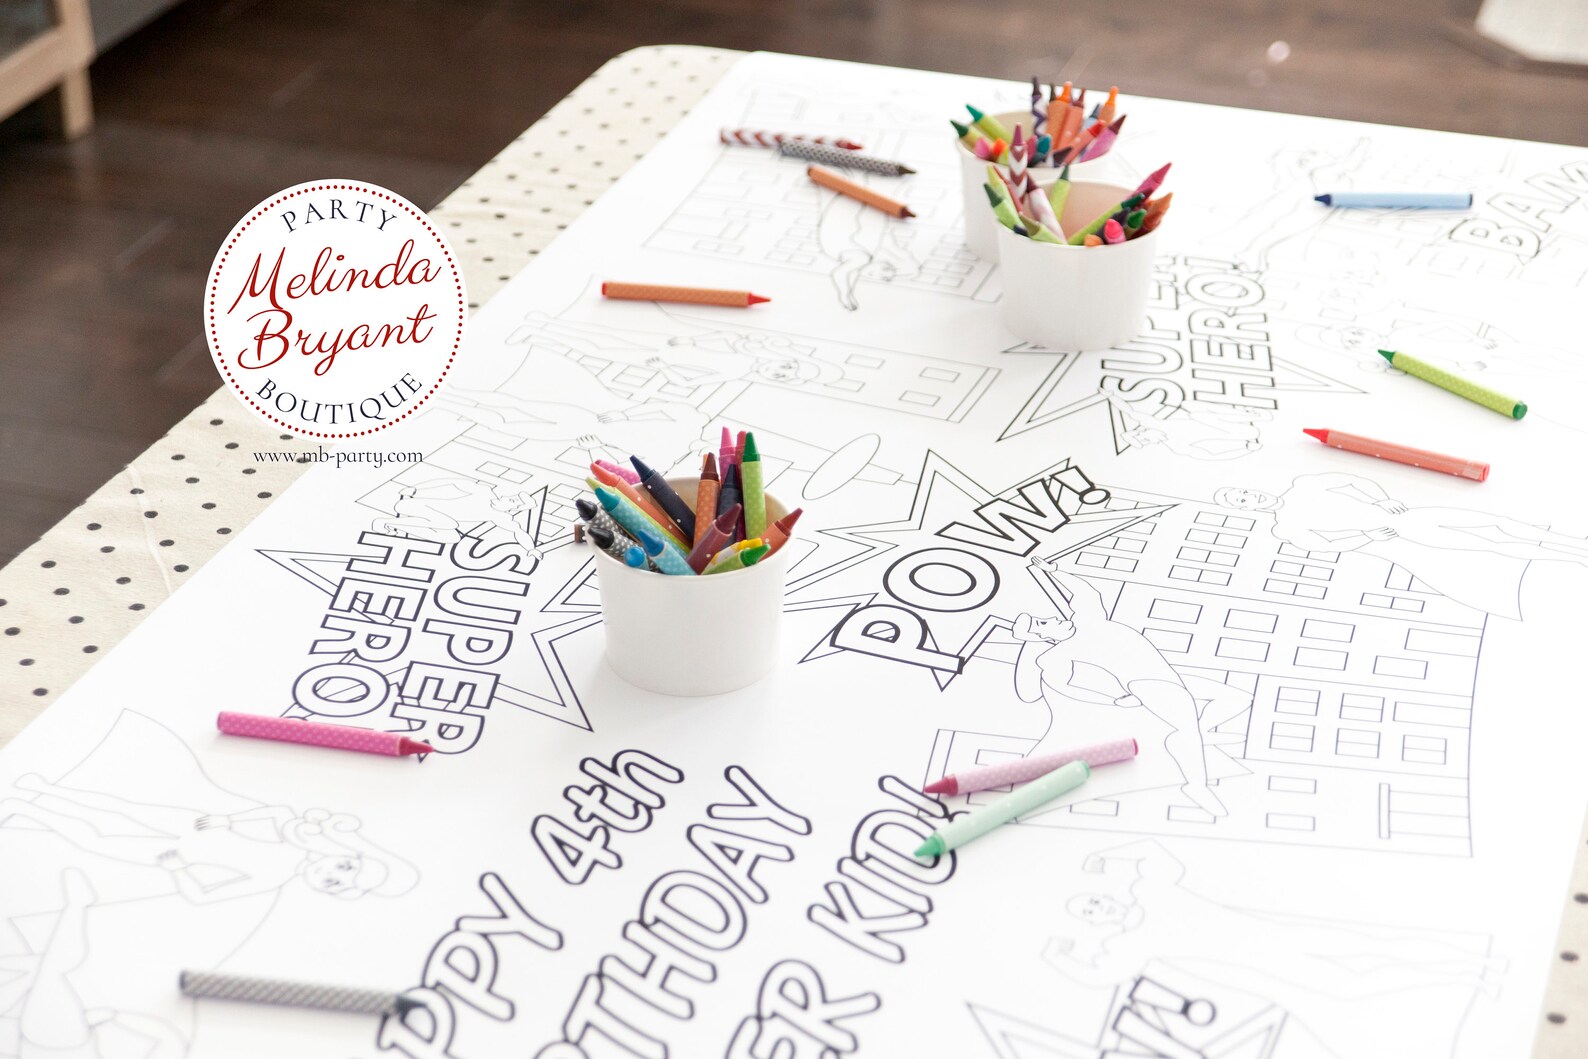 PARTY
Melinda
Bryant
BOUTIQUE
www.mb-party.com
BAM
SUPER
HERO!
POW!
SUPER
HERO!
PPY 4th
RTHDAY
ER KID!
W!